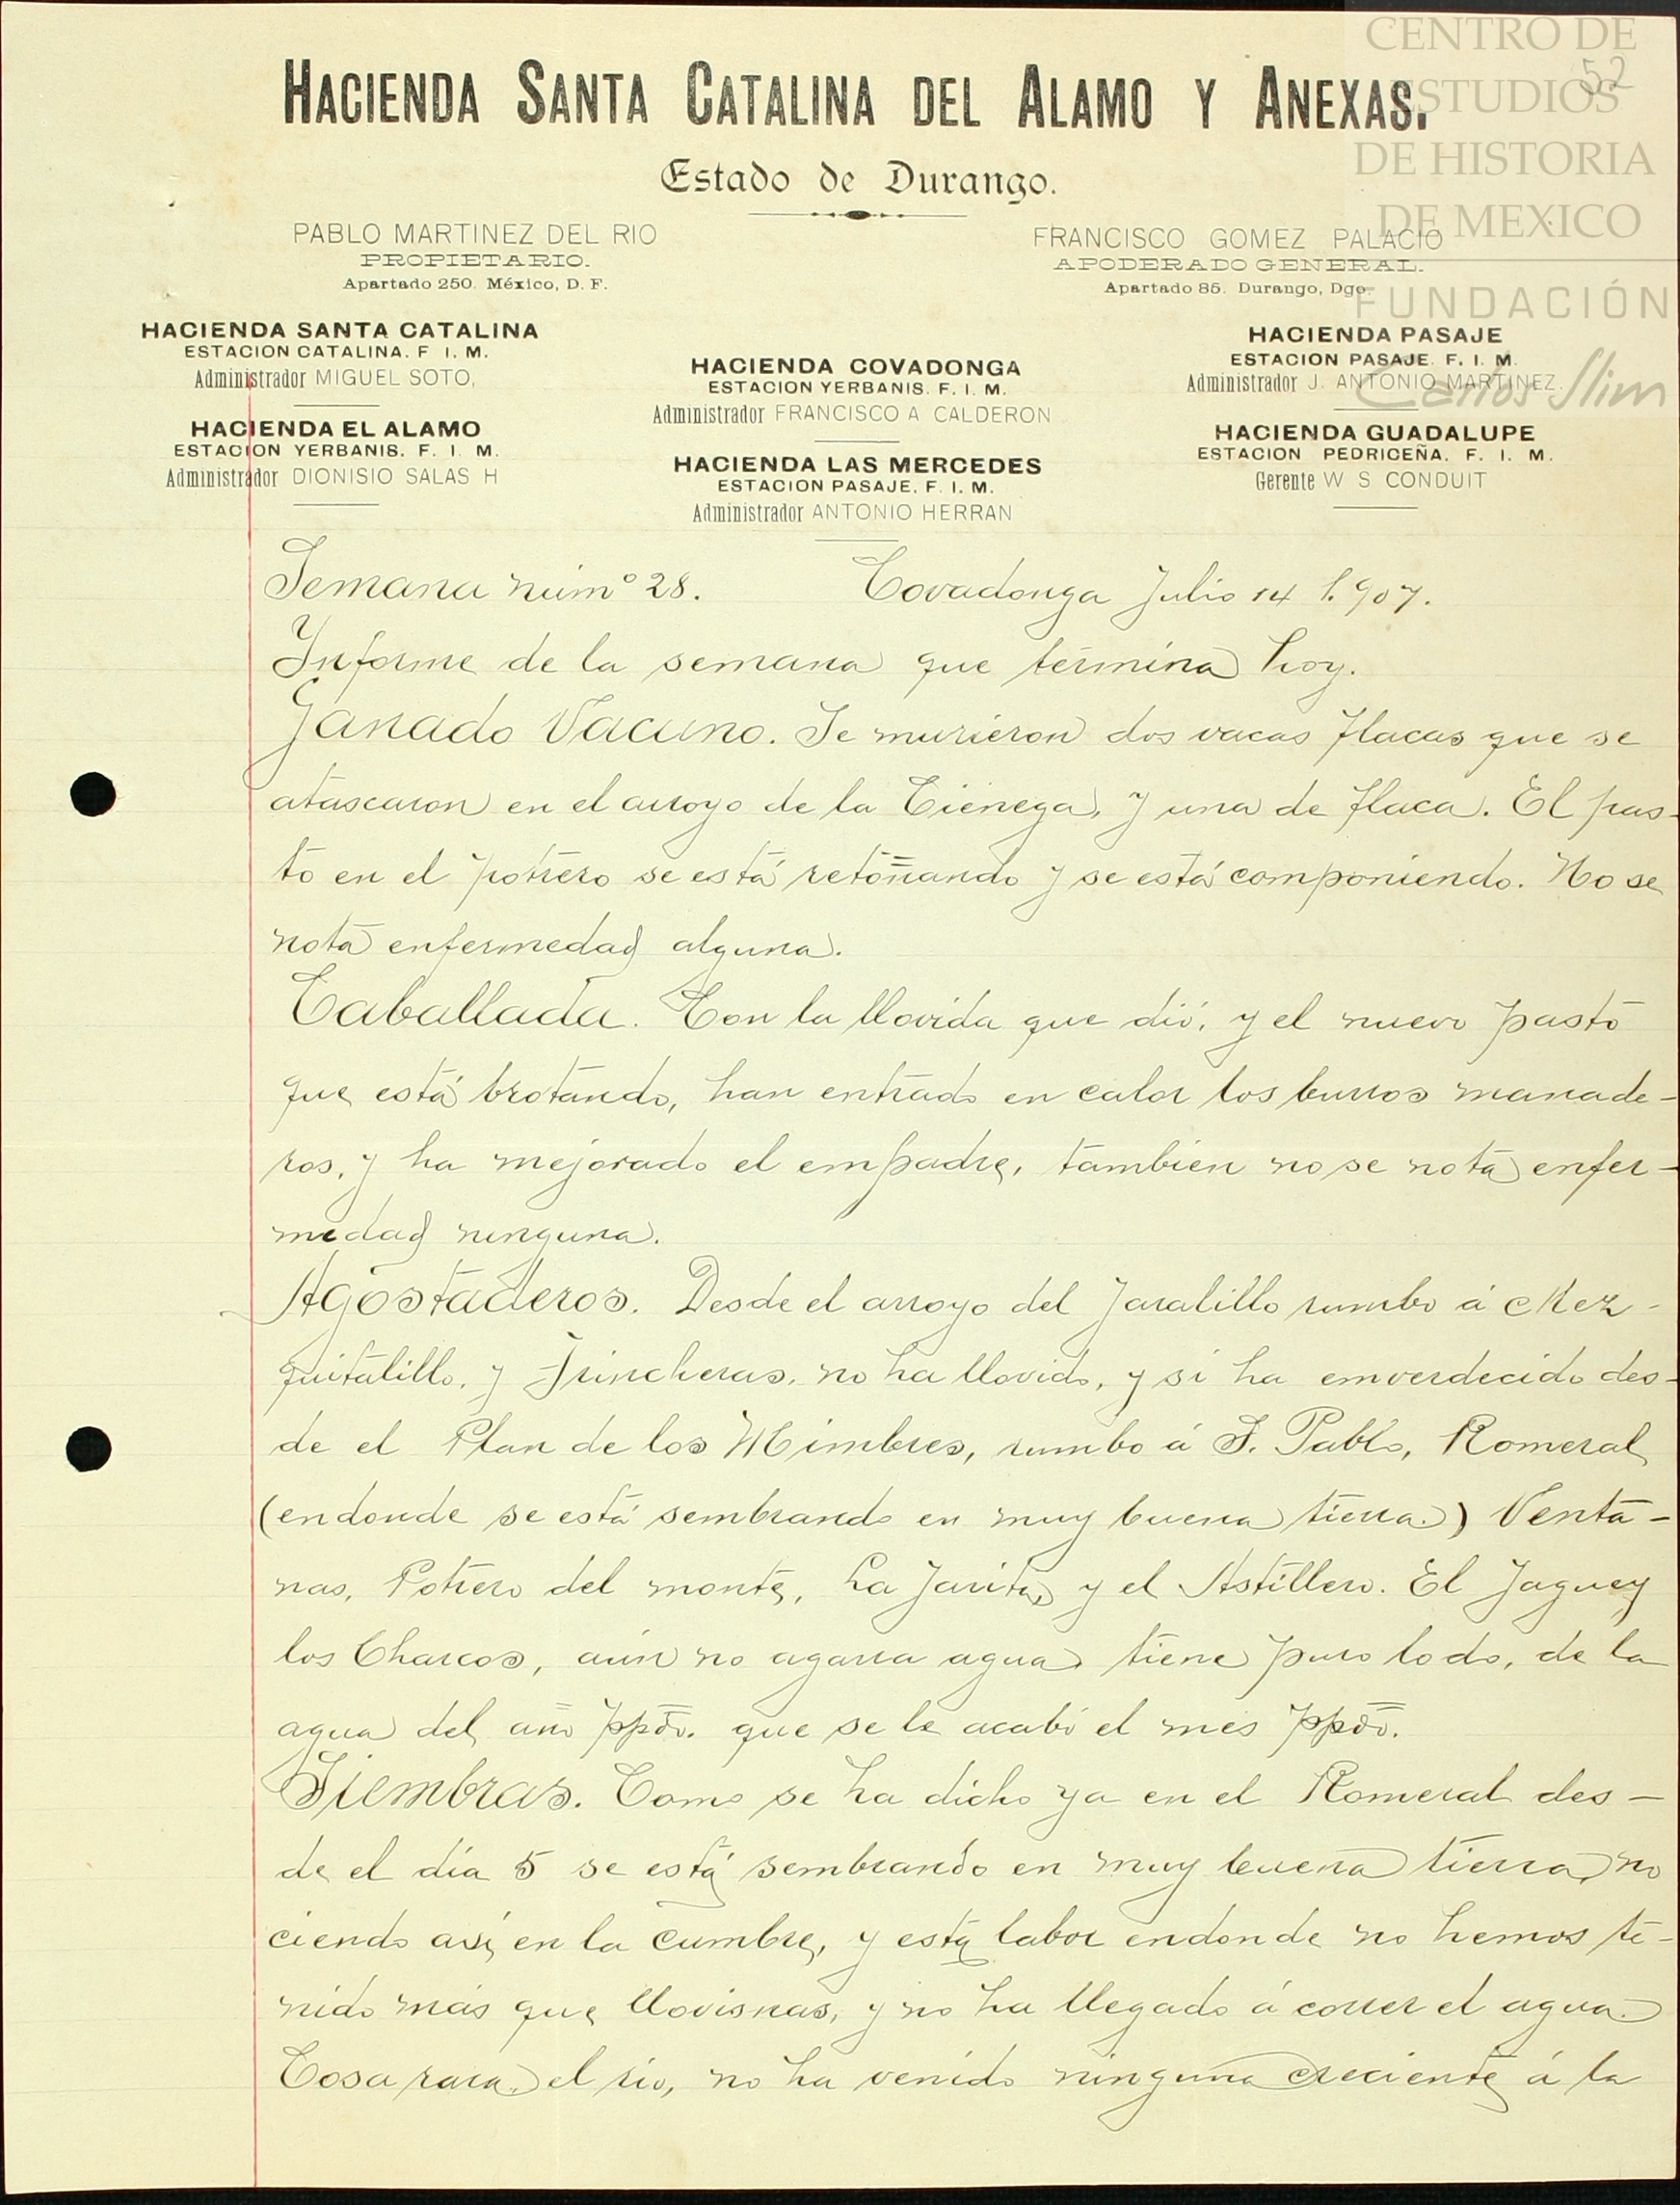 CENTRO DE
ESTUDIOS
DE HISTORIA
DE MEXICO
FUNDACIÓN
Carlos Slim
52
HACIENDA SANTA CATALINA DEL ALAMO Y ANEXAS.
Estado de Durango.
PABLO MARTINEZ DEL RIO
PROPIETARIO.
Apartado 250. México, D. F.
FRANCISCO GOMEZ PALACIO
APODERADO GENERAL.
Apartado 85. Durango, Dgo.
HACIENDA SANTA CATALINA
ESTACION CATALINA. F I. M.
Administrador MIGUEL SOTO,
HACIENDA EL ALAMO
ESTACION YERBANIS. F. I. M.
Administrador DIONISIO SALAS H
HACIENDA COVADONGA
ESTACION YERBANIS. F. I. M.
Administrador FRANCISCO A CALDERON
HACIENDA LAS MERCEDES
ESTACION PASAJE, F. I. M.
Administrador ANTONIO HERRAN
HACIENDA PASAJE
ESTACION PASAJE F. I. M.
Administrador J. ANTONIO MARTINEZ.
HACIENDA GUADALUPE
ESTACION PEDRICEÑA. F. I. M.
Gerente W S CONDUIT
Semana núm° 28. Covadonga Julio 14 1.907.
Informe de la semana que termina hoy.
Ganado Vacuno. Se murieron dos vacas flacas que se
atascaron en el arroyo de la Ciénega, y una de flaca. El pas-
to en el potrero se está retoñando y se está componiendo. No se
nota enfermedad alguna.
Caballada. Con la llovida que dió, y el nuevo pasto
que está brotando, han entrado en calor los burros manade-
ros, y ha mejorado el empadre, tambien no se nota enfer-
medad ninguna.
Agostaderos. Desde el arroyo del Jaralillo rumbo á Mez-
quitalillo, y Trincheras, no ha llovido, y si ha emverdecido des-
de el Plan de los Mimbres, rumbo á S. Pablo, Romeral
(endonde se está sembrando en muy buena tierra.) Venta-
nas, Potrero del monte, La Jarita, y el Astillero. El Jaguey
los Charcos, aún no agarra agua, tiene puro lodo, de la
agua del año ppdo. que se le acabó el mes ppdo.
Siembras. Como se ha dicho ya en el Romeral des-
de el día 5 se está sembrando en muy buena tierra, no
ciendo asi, en la cumbre, y esta labor endonde no hemos te-
nido más que llovisnas, y no ha llegado á correr el agua.
Cosa rara, el rio, no ha venido ninguna creciente á la